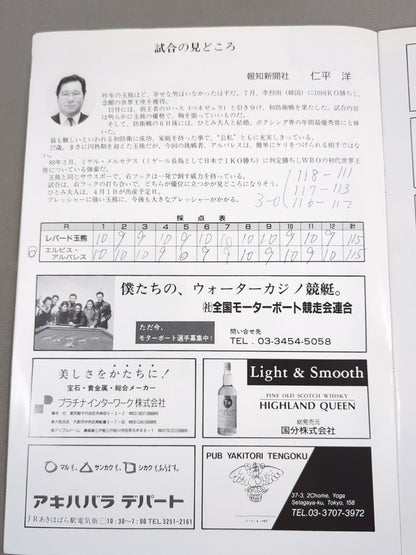 試合の見どころ
報知新聞社 仁平 洋
昨年の玉熊ほど、幸せな男はいなかったはずだ。7月、李烈雨(韓国)に10回KO勝ちし、
念願の世界王座を獲得。
12月には、前王者のロハス(ベネズェラ)と引き分け、初防衛戦を果たした。試合内容
は明らかに玉熊の優勢で、胸を張っていいものだ。
そして、防衛戦の6日後には、ひとみ夫人と結婚。ボクシング界の年間最優秀賞にも輝
いた。
最も難しいといわれる初防衛に成功、家庭を持った事で、“公私”ともに充実しきっている。
27歳。まさに円熟期を迎えた玉熊だが、今回の挑戦者、アルバレスは、簡単にケリをつけられる相手ではな
い。
89年3月、ミゲル・メルセデス(ミゲール長島として日本で1KO勝ち)に判定勝ちしWBOの初代世界王
座についている強豪だ。
玉熊と同じサウスポーで、右フックは一発で倒す威力を持っている。
試合は、右フックの打ち合いで、どちらが優位に立つかが見どころになりそう。
ひとみ夫人は、4月1日が出産予定日。
プレッシャーに強い玉熊に、今後も大きなプレッシャーがかかる。
118-111
117-113
3-0
116-112
採点表
R 1 2 3 4 5 6 7 8 9 10 11 12 計
レパード玉熊 10 9 9 10 9 10 10 115
エルビス・アルバレス 10 10 10 115
僕たちの、ウォーターカジノ競艇。
(社)全国モーターボート競走会連合
ただ今、
モターボート選手募集中!
問い合せ先
TEL. 03-3454-5058
美しさをかたちに!
宝石・貴金属・総合メーカー
プラチナインターワーク株式会社
Light & Smooth
FINE OLD SCOTCH WHISKY
HIGHLAND QUEEN
総発売元
国分株式会社
○マルも、△サンカクも、□シカクもあります。
アキハバラ デパート
JRあきはばら駅電気街口 10:30~7:00 TEL 3251-2161
PUB YAKITORI TENGOKU
37-3, 2Chome, Yoga
Setagaya-ku, Tokyo, 158
TEL.03-3707-3972